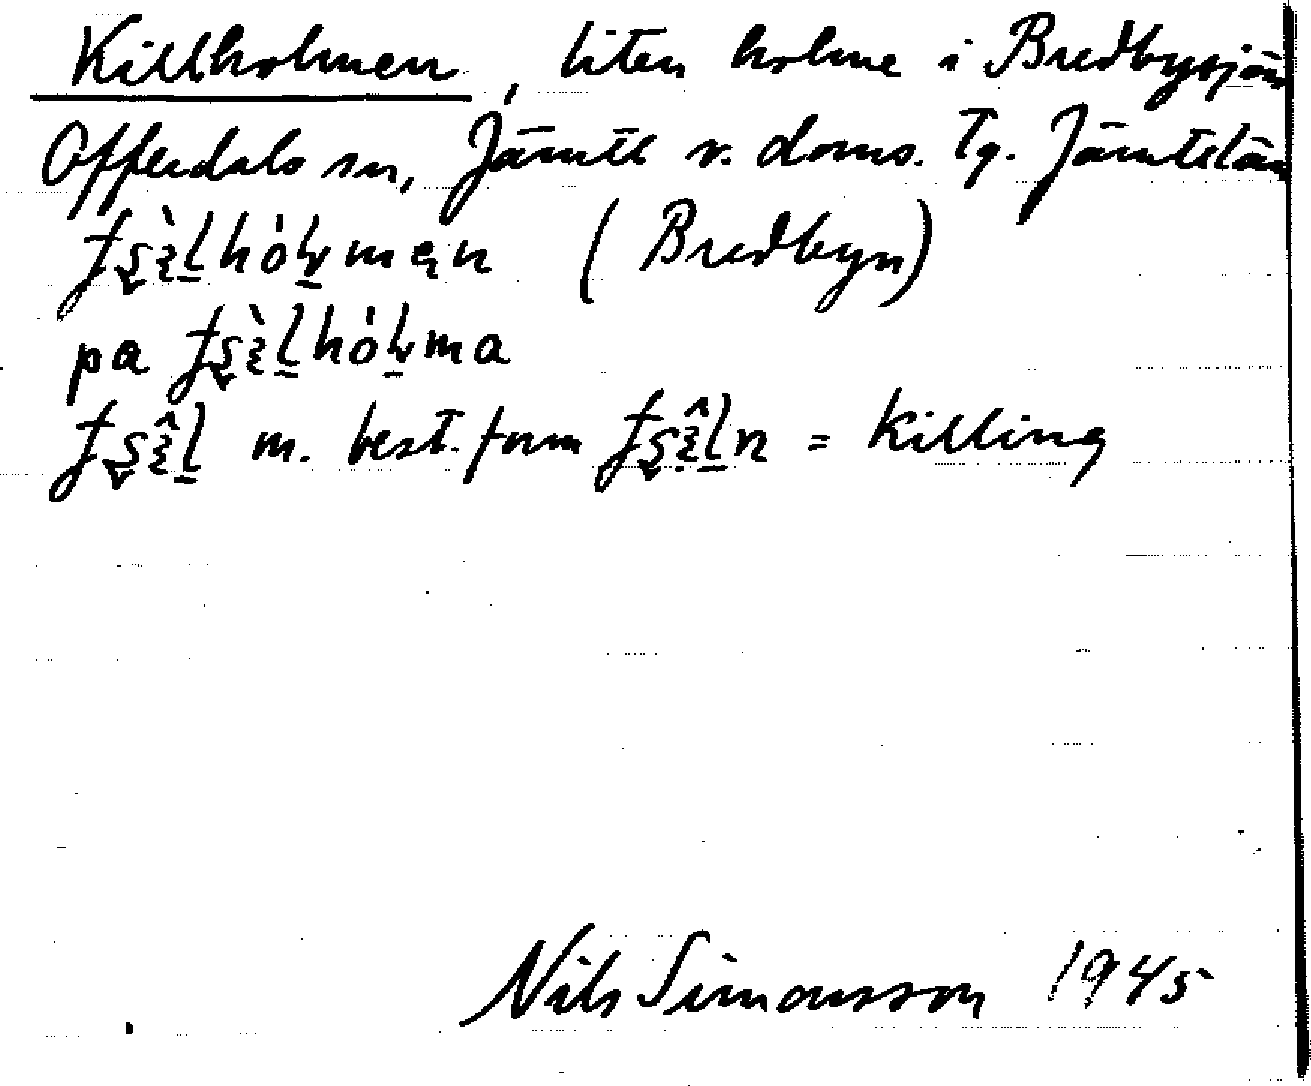 Killholmen, liten holme i Bredbysjön
Offerdals sn, Jämtl v. doms. Tg. Jämtslän
(Bredbyn)
pa
m. best. form = killing
Nils Simonsson 1945